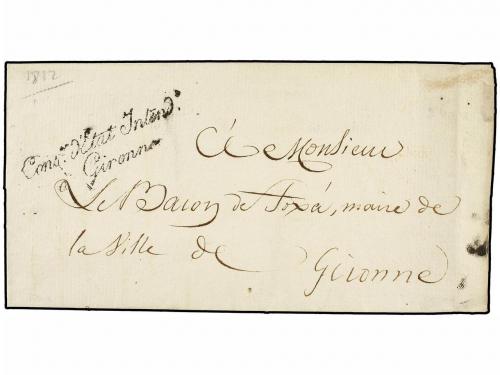 1812
Cons.er d'Etat Intend.t
à Gironne
A Monsieur
Le Baron de Foxá, maire de
la Ville de
Gironne